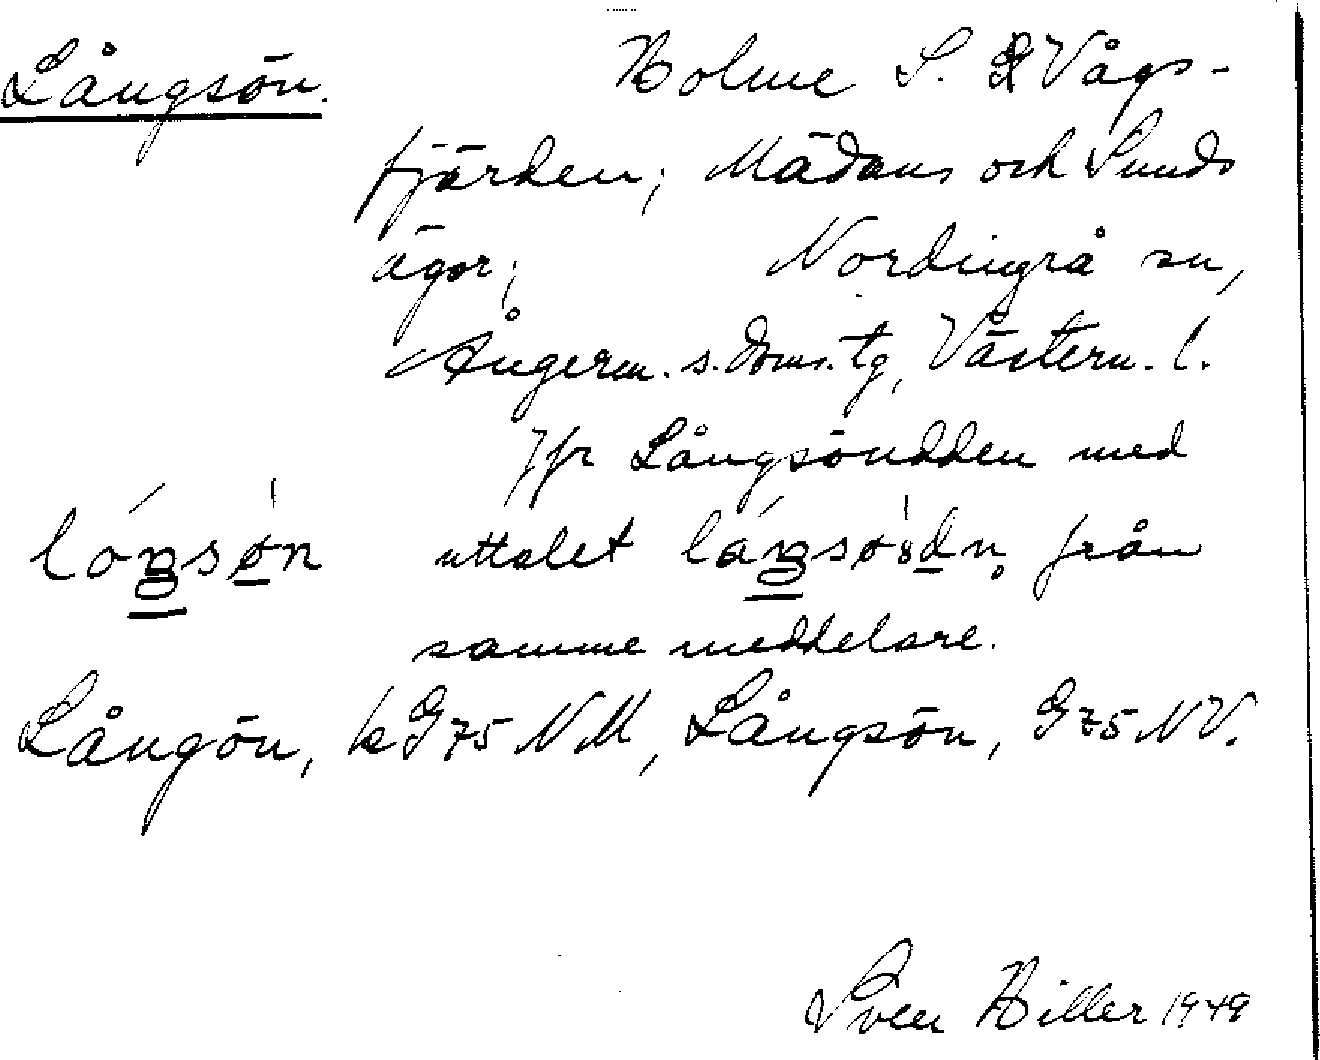 Långsön. Holme S. Vågs-
fjärden; Mädans och Sunds
ägor; Nordingrå sn,
Ångerm. s. doms. tg, Västern. l.
Jfr Långsöudden med
lóŋsøn uttalet låŋsøudn̥ från
samme meddelare.
Långön, kG75 NM, Långsön, G75 NV.
Sven Hiller 1949